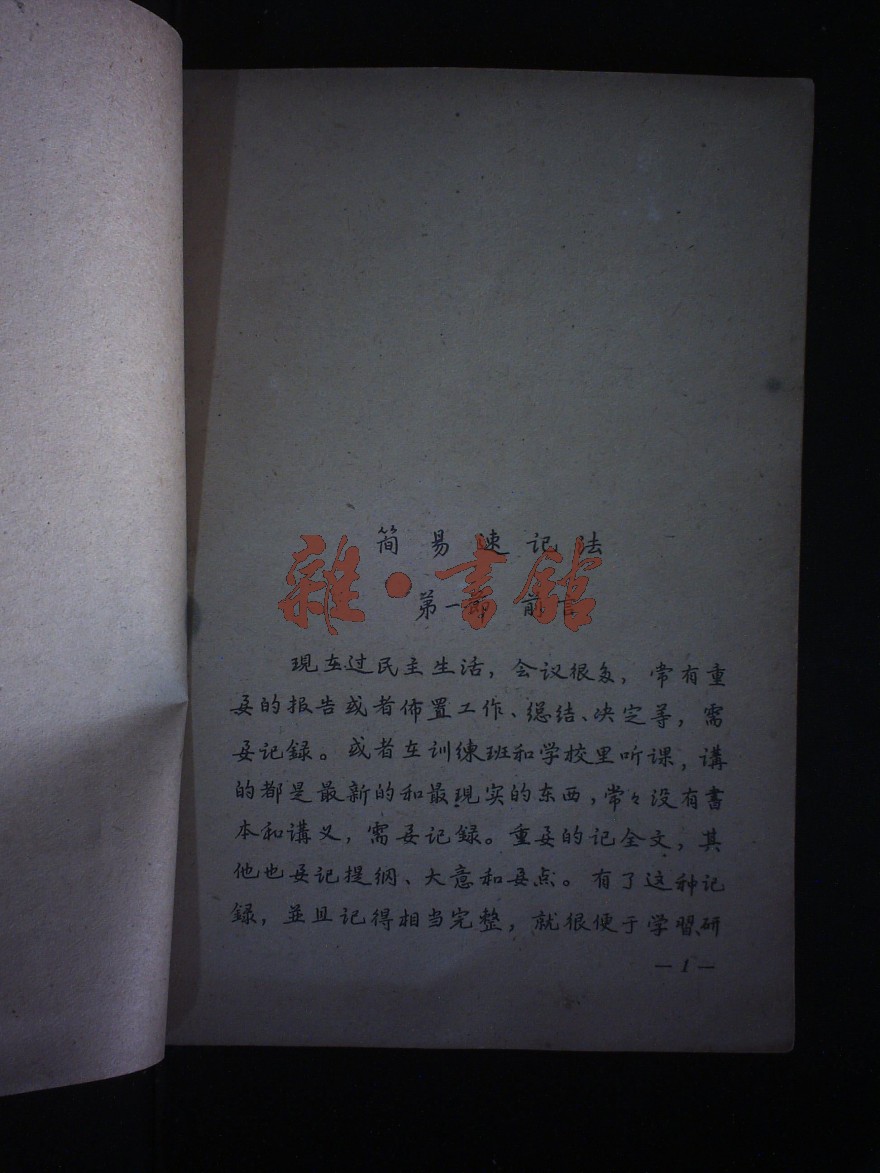 简易速记法
雜·書館
第一节 前言
現在过民主生活，会议很多，常有重
要的报告或者佈置工作、總结、决定等，需
要记録。或者在训練班和学校里听课，講
的都是最新的和最現实的东西，常々没有書
本和講义，需要记録。重要的记全文，其
他也要记提纲、大意和要点。有了这种记
録，並且记得相当完整，就很便于学習、研
—1—